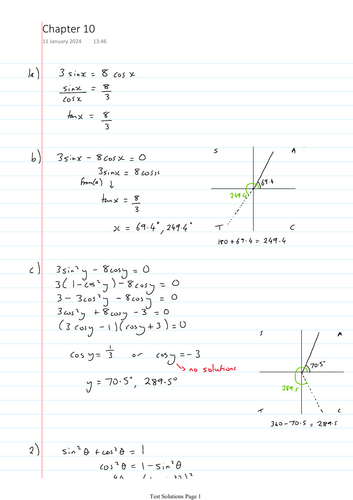 Chapter 10
11 January 2024 13:46
1a) 3 sinx = 8 cosx
sinx/cosx = 8/3
tanx = 8/3
b) 3sinx - 8cosx = 0
3sinx = 8cosx
from (a) ↓
tanx = 8/3
x = 69.4°, 249.4°
S A
69.4
249.4
T C
180 + 69.4 = 249.4
c) 3sin²y - 8cosy = 0
3(1-cos²y) - 8cosy = 0
3 - 3cos²y - 8cosy = 0
3cos²y + 8cosy - 3 = 0
(3cosy - 1)(cosy + 3) = 0
cosy = 1/3 or cosy = -3
↳ no solutions
y = 70.5°, 289.5°
S A
70.5°
289.5
T C
360 - 70.5 = 289.5
2) sin²θ + cos²θ = 1
cos²θ = 1 - sin²θ
Test Solutions Page 1